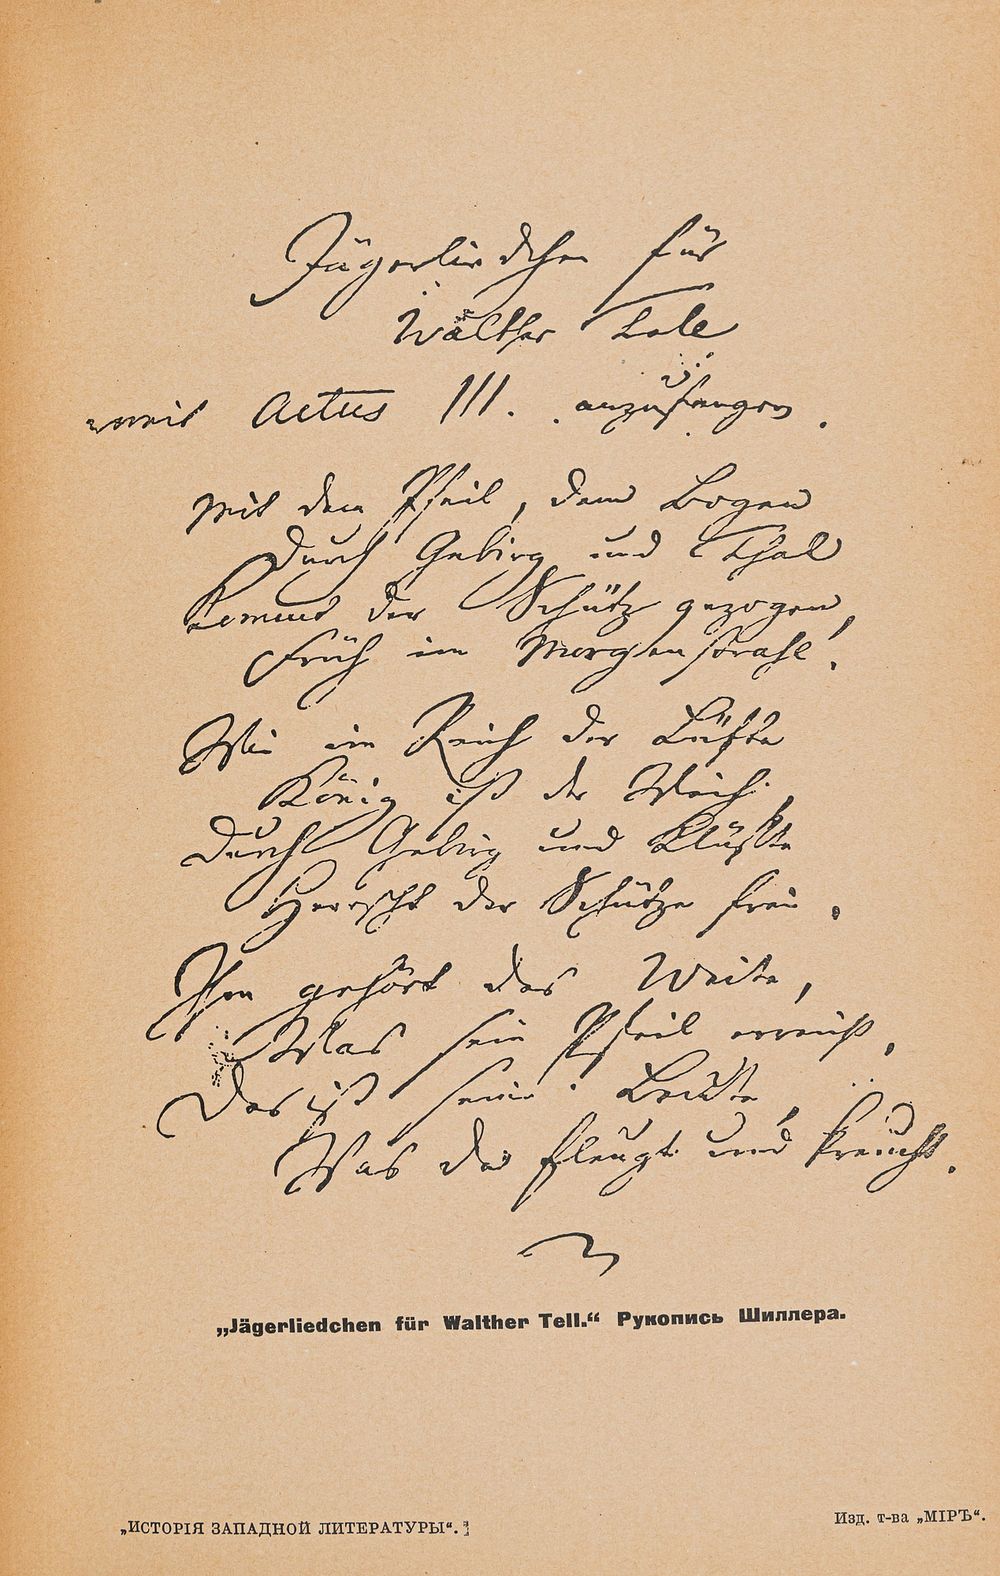 Jägerliedchen für
Walther Tell
mit Actus III. anzufangen.
Mit dem Pfeil, dem Bogen
Durch Gebirg und Thal
Kommt der Schütz gezogen,
Früh im Morgenstrahl.
Wie im Reich der Lüfte
König ist der Weih,
Durch Gebirg und Klüfte
Herrscht der Schütze frei.
Ihm gehört das Weite,
Was sein Pfeil erreicht,
Das ist seine Beute,
Was da fleugt und kreucht.
„Jägerliedchen für Walther Tell.“ Рукопись Шиллера.
„ИСТОРІЯ ЗАПАДНОЙ ЛИТЕРАТУРЫ“.
Изд. т-ва „МІРЪ“.